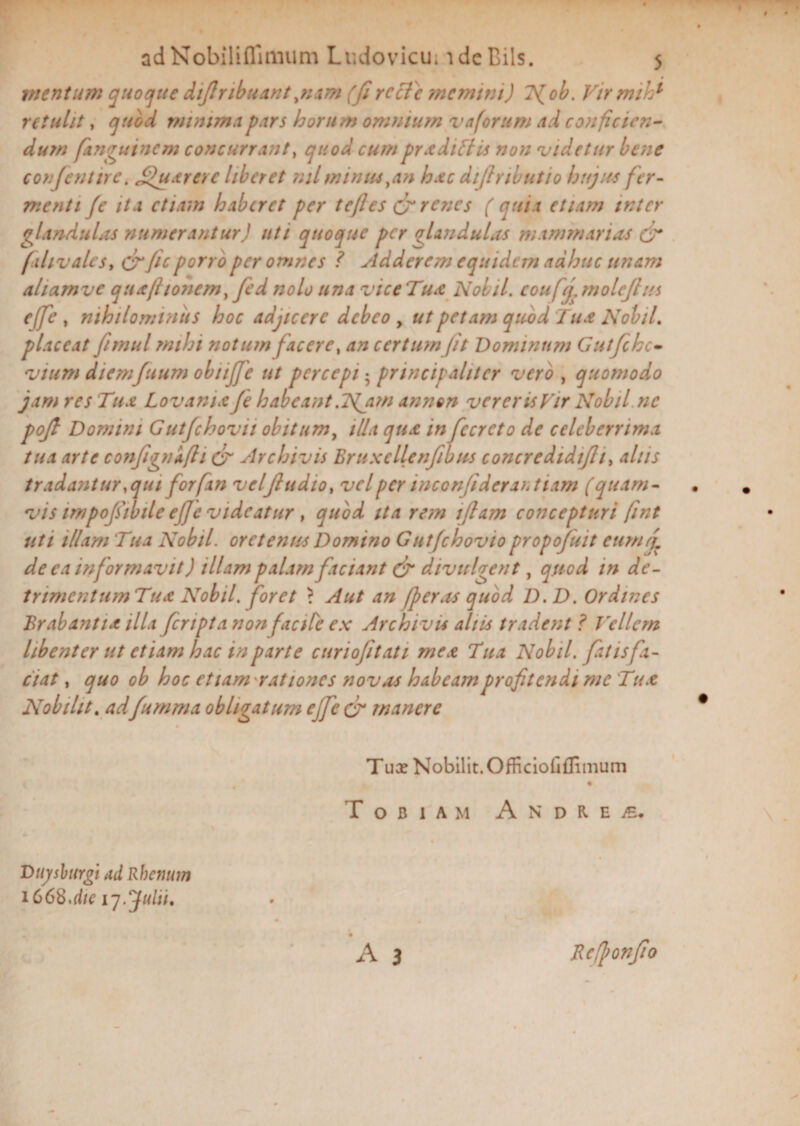 ad Nobilissimum Ludovicu. de Bils. 5
mentum quoque distribuant, nam (si recte memini) Nob. Vir mihi
retulit, quòd minima pars horum omnium vasorum ad conficien-
dum sanguinem concurrant, quod cum prædictis non videtur bene
consentire. Quærere liberet nil minus, an hæc distributio hujus fer-
menti se ita etiam haberet per testes & renes (quia etiam inter
glandulas numerantur) uti quoque per glandulas mammarias &
salivales, & sic porrò per omnes? Adderem equidem adhuc unam
aliamve quæstionem, sed nolo una vice Tuæ Nobil. cousq; molestus
esse, nihilominùs hoc adjicere debeo, ut petam quòd Tuæ Nobil.
placeat simul mihi notum facere, an certum sit Dominum Gutscho-
vium diem suum obiisse ut percepi; principaliter verò, quomodo
jam res Tuæ Lovaniæ se habeant. Nam annon vereris Vir Nobil. ne
post Domini Gutschovii obitum, illa quæ in secreto de celeberrima
tua arte consignâsti & Archivis Bruxellensibus concredidisti, aliis
tradantur, qui forsan vel studio, vel per inconsiderantiam (quam-
vis impossibile esse videatur, quòd ita rem istam concepturi sint
uti illam Tua Nobil. oretenus Domino Gutschovio proposuit eumq;
de ea informavit) illam palam faciant & divulgent, quod in de-
trimentum Tuæ Nobil. foret? Aut an speras quòd D. D. Ordines
Brabantiæ illa scripta non facile ex Archivis aliis tradent? Vellem
libenter ut etiam hac in parte curiositati meæ Tua Nobil. satisfa-
ciat, quo ob hoc etiam rationes novas habeam profitendi me Tuæ
Nobilit. ad summa obligatum esse & manere
Tuæ Nobilit. Officiosissimum
TOBIAM ANDREÆ.
Duysburgi ad Rhenum
1668. die 17. Julii.
A 3 Responsio